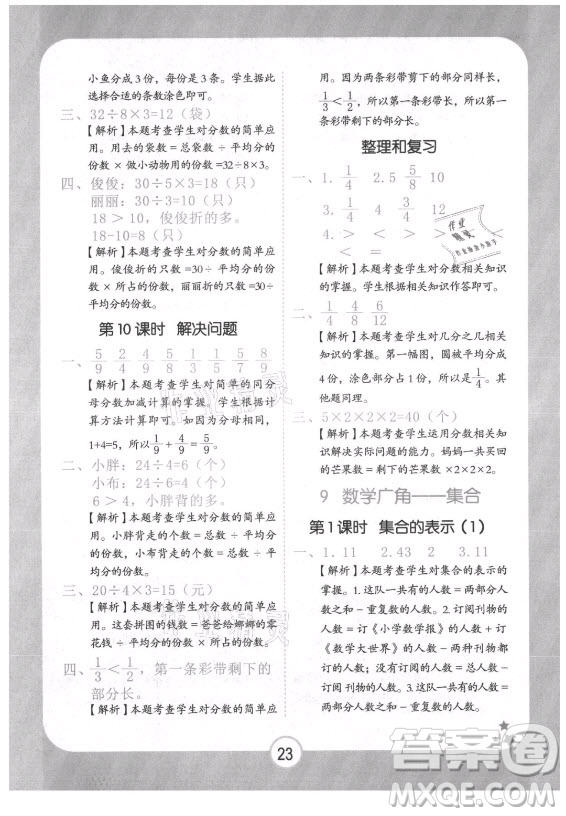 小鱼分成 3 份，每份是 3 条。学生据此
选择合适的条数涂色即可。
三、32÷8×3=12（袋）
【解析】本题考查学生对分数的简单应
用。用去的袋数 = 总袋数 ÷ 平均分的
份数 × 做小动物用的份数 =32÷8×3。
四、俊俊：30÷5×3=18（只）
丽丽：30÷3=10（只）
18 > 10，俊俊折的多。
18-10=8（只）
【解析】本题考查学生对分数的简单应
用。俊俊折的只数 =30÷ 平均分的份
数 × 所占的份数，丽丽折的只数 =30÷
平均分的份数。
第 10 课时 解决问题
一、5/9 2/4 4/9 5/8 1/5 5/8 8/9
【解析】本题考查学生对简单的同分
母分数加减计算的掌握。学生根据计算
方法计算即可。如因为分母相同，
1+4=5，所以 1/9 + 4/9 = 5/9。
二、小胖：24÷4=6（个）
小布：24÷6=4（个）
6 > 4，小胖背的多。
【解析】本题考查学生对分数的简单应
用。小胖背的个数 = 总个数 ÷ 平均分
的份数，小布背的个数 = 总个数 ÷ 平
均分的份数。
三、20÷4×3=15（元）
【解析】本题考查学生对分数的简单应
用。这套拼图的钱数 = 爸爸给娜娜的零
花钱 ÷ 平均分的份数 × 所占的份数。
四、1/3 < 1/2，第一条彩带剩下的
部分长。
【解析】本题考查学生对分数的简单应
用。因为两条彩带剪下的部分同样长，
1/3 < 1/2，所以第一条彩带剩下的部分长。
整理和复习
一、1. 1/4 2. 5 5/8 10
3. 1/4 2/4
< > = < <
【解析】本题考查学生对分数相关知识
的掌握。学生根据相关知识作答即可。
二、1/4 4/8 6/12
【解析】本题考查学生对几分之几相关
知识的掌握。第一幅图，圆被平均分成
4 份，涂色部分占 1 份，所以是 1/4。其
他题同理。
三、5×2×2×2=40（个）
【解析】本题考查学生运用分数相关知
识解决实际问题的能力。妈妈一共买
的芒果数 = 剩下的芒果数 ×2×2×2。
9 数学广角——集合
第 1 课时 集合的表示（1）
一、1. 11 2. 43 2 3. 11
【解析】本题考查学生对集合的表示的
掌握。1. 这队一共有的人数 = 两部分人
数之和 - 重复的人数。2. 订阅刊物的
人数 = 订《小学数学报》的人数 + 订
《数学大世界》的人数 - 重复订的人
数；没有订阅的人数 = 总人数 - 订
阅刊物的人数。3. 这队一共有的人数 =
两部分人数之和 - 重复的人数。
23
答案圈
MXQE.COM